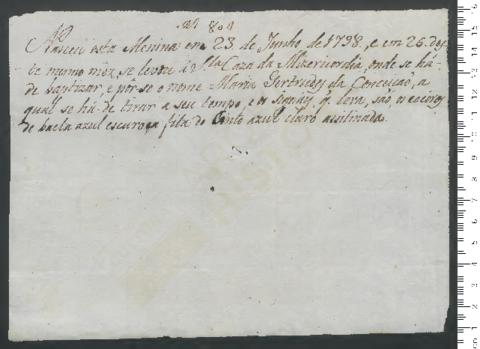 Nº 804
Nasceu esta Menina em 23 de Junho de 1798, e em 25 des
te mesmo mez se levou á S.ta Caza da Mizericordia onde se há
de baptizar, e pôr-se o nome Maria Gertrudes da Conceição, a
qual se há de tirar a seu tempo, e os signáes q. leva, são, os
de baeta azul escuro, e fita do Cinto azul claro assignada.